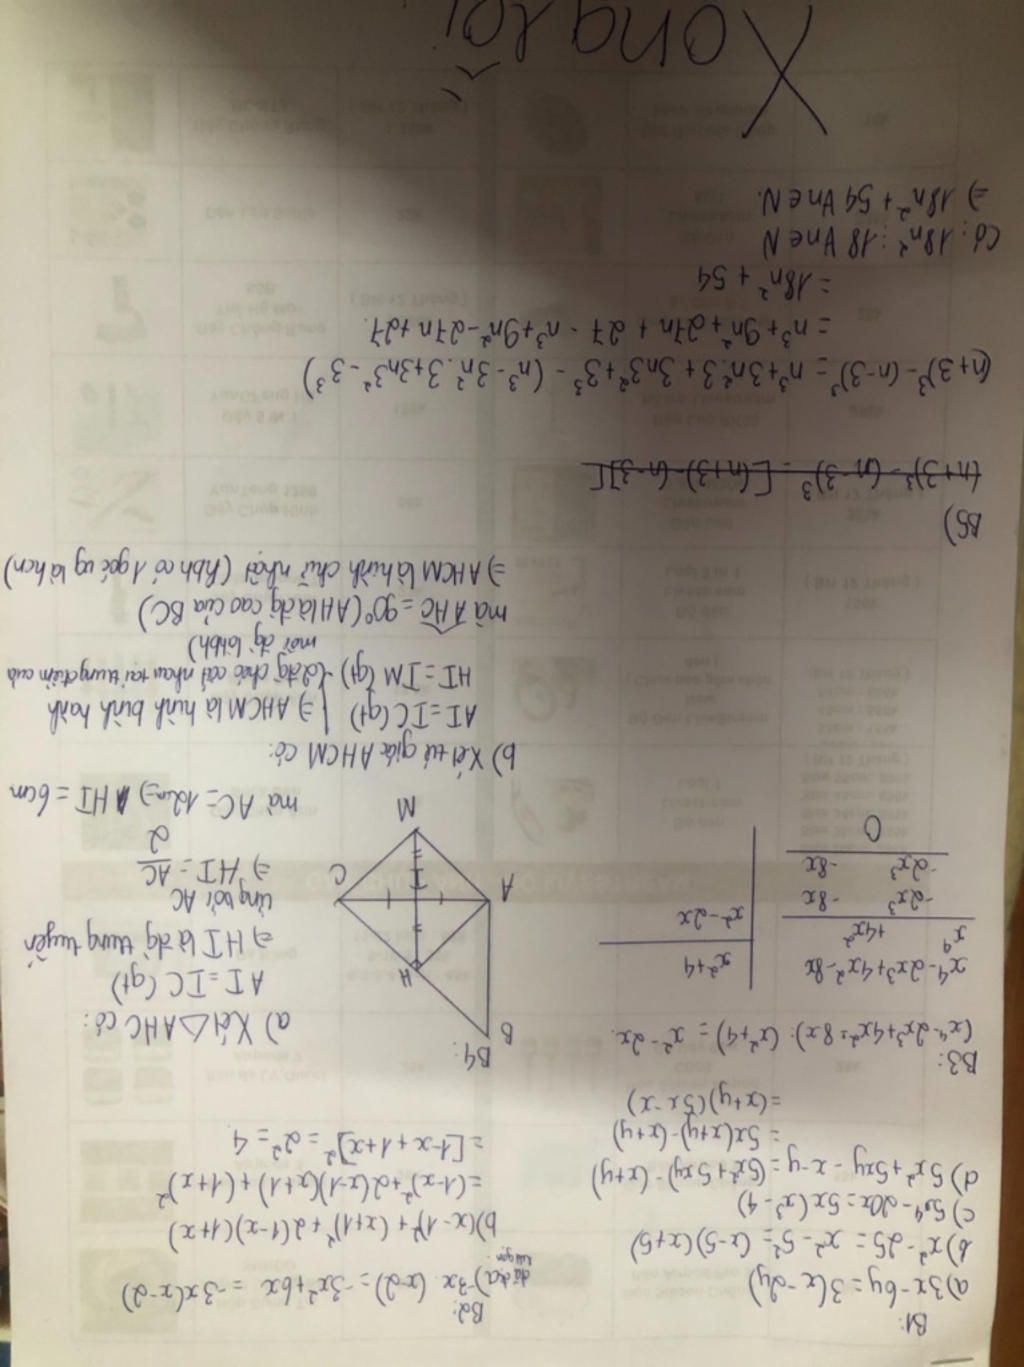 B1:
a) 3x - 6y = 3(x - 2y)
b) x² - 25 = x² - 5² = (x-5)(x+5)
c) 5x⁴ - 20x = 5x(x³ - 4)
d) 5x² + 5xy - x - y = (5x² + 5xy) - (x+y)
= 5x(x+y) - (x+y)
= (x+y)(5x - x)
B2:
a) -3x (x-2) = -3x² + 6x = -3x(x-2)
b) (x-1)² + (x+1)² + 2(1-x)(1+x)
= (1-x)² + 2(x-1)(x+1) + (1+x)²
= [1-x+1+x]² = 2² = 4
B3:
(x⁴ - 2x³ + 4x² - 8x) : (x² + 4) = x² - 2x.
x⁴ - 2x³ + 4x² - 8x
x² + 4
x⁴ + 4x²
x² - 2x
-2x³ - 8x
-2x³ - 8x
0
B4:
B
H
A
I
C
M
a) Xét △AHC có:
AI = IC (gt)
⇒ HI là đg trung tuyến
ứng với AC
⇒ HI = AC
2
mà AC = 12cm ⇒ HI = 6cm
b) Xét tứ giác AHCM có:
AI = IC (gt) ⇒ AHCM là hình bình hành
HI = IM (gt) (2 đg chéo cắt nhau tại trung điểm của
mỗi đg là hbh)
mà AHC = 90° (AH là đg cao của BC)
⇒ AHCM là hình chữ nhật (hbh có 1 góc vg là hcn)
B5)
(n+3)³ - (n-3)³ = [(n+3) - (n-3)][
(n+3)³ - (n-3)³ = n³ + 3n².3 + 3n3² + 3³ - (n³ - 3n².3 + 3n3² - 3³)
= n³ + 9n² + 27n + 27 - n³ + 9n² - 27n + 27.
= 18n² + 54
Có: 18n² ⋮ 18 ∀n∈N
⇒ 18n² + 54 ∀n∈N.
Xong rồi